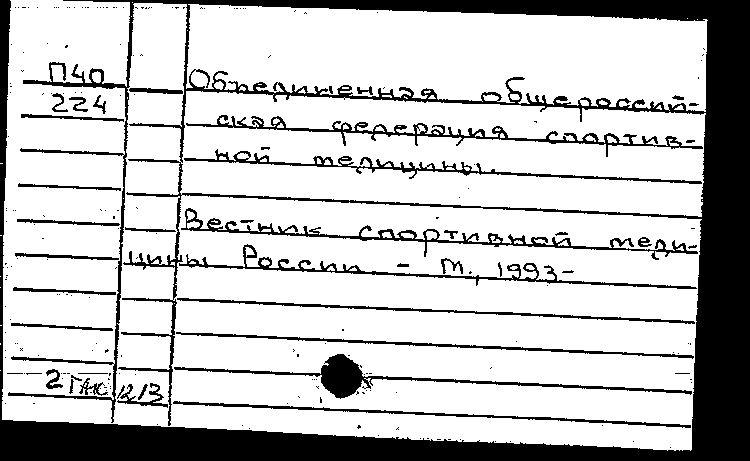 П40
224
Объединенная общероссий-
ская федерация спортив-
ной медицины.
Вестник спортивной меди-
цины России. - М., 1993-
2